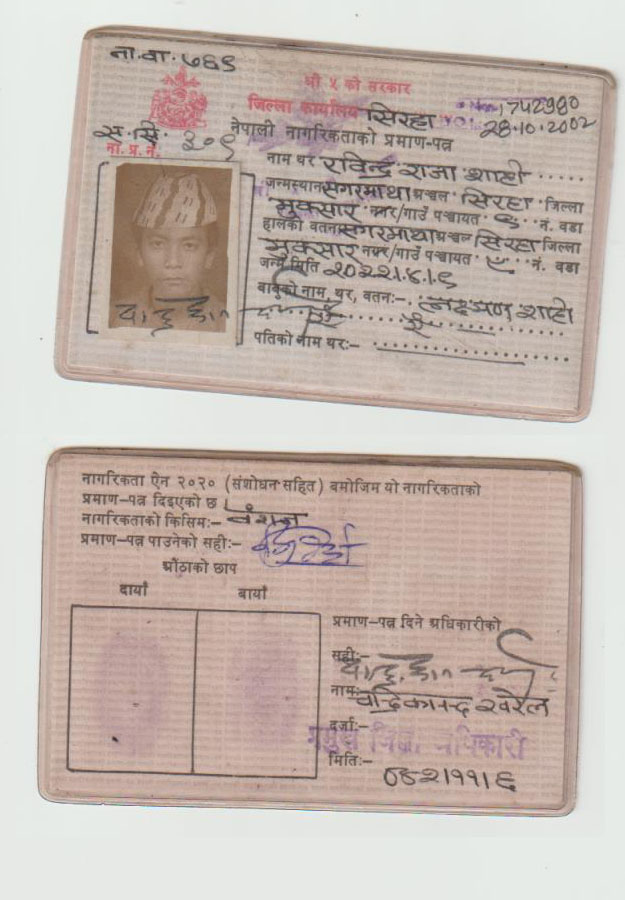 ना.वा. ७६९
श्री ५ को सरकार
जिल्ला कार्यालय सिरहा
742980
28.10.2002
ना. प्र. नं.
नेपाली नागरिकताको प्रमाण-पत्र
नाम थर रविन्द्र राजा शाही
जन्मस्थान सगरमाथा अञ्चल सिरहा जिल्ला
मुक्सार नगर/गाउँ पञ्चायत नं. वडा
हालको वतन सगरमाथा अञ्चल सिरहा जिल्ला
मुक्सार नगर/गाउँ पञ्चायत नं. वडा
जन्म मिति
बाबुको नाम, थर, वतन:- शाही
पतिको नाम थर:-
नागरिकता ऐन २०२० (संशोधन सहित) बमोजिम यो नागरिकताको
प्रमाण-पत्र दिइएको छ।
नागरिकताको किसिम:- वंशज
प्रमाण-पत्र पाउनेको सही:-
औंठाको छाप
दायाँ बायाँ
प्रमाण-पत्र दिने अधिकारीको
सही:-
नाम:-
दर्जा:- प्रमुख जिल्ला अधिकारी
मिति:-